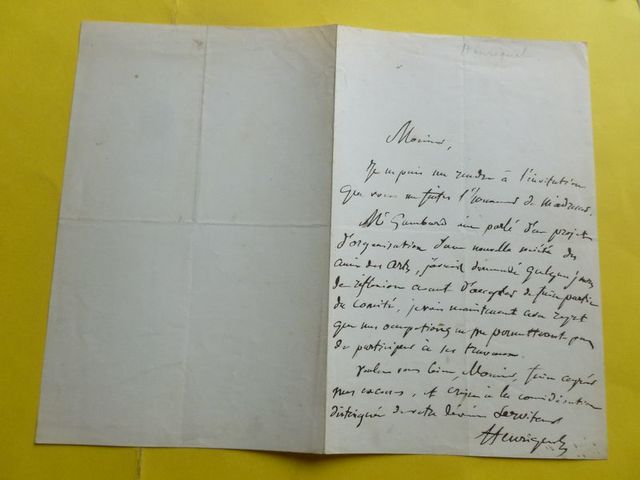 Henriquel
Monsieur,
Je ne puis me rendre à l'invitation
que vous me faites l'honneur de m'adresser.
Mr Gambard m'a parlé d'un projet
d'organisation d'une nouvelle société des
amis des arts, j'avais demandé quelques jours
de réflexion avant d'accepter de faire partie
du Comité, je vois maintenant avec regret
que mes occupations ne me permettront pas
de participer à ses travaux.
Veuillez bien, Monsieur, faire agréer
mes excuses, et croire à la considération
distinguée de votre dévoué Serviteur
Henriquel